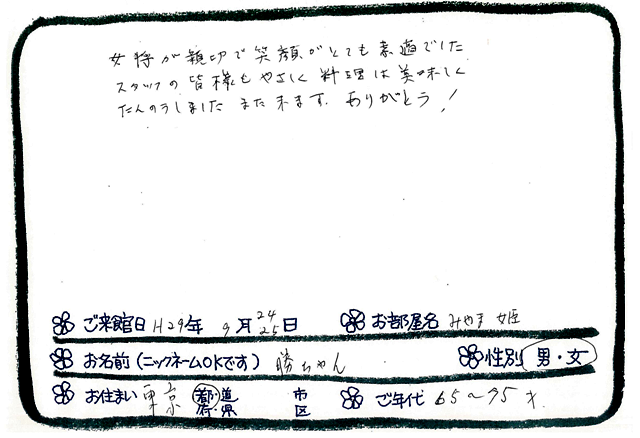 女将が親切で笑顔がとても素適でした
スタッフの皆様もやさしく料理は美味しく
たんのうしました また来ます ありがとう!
ご来館日 H29年 9月24 25日 お部屋名 みやま姫
お名前(ニックネームOKです) 勝ちゃん 性別 男・女
お住まい 東京 都・道 府・県 市 区 ご年代 65〜75才